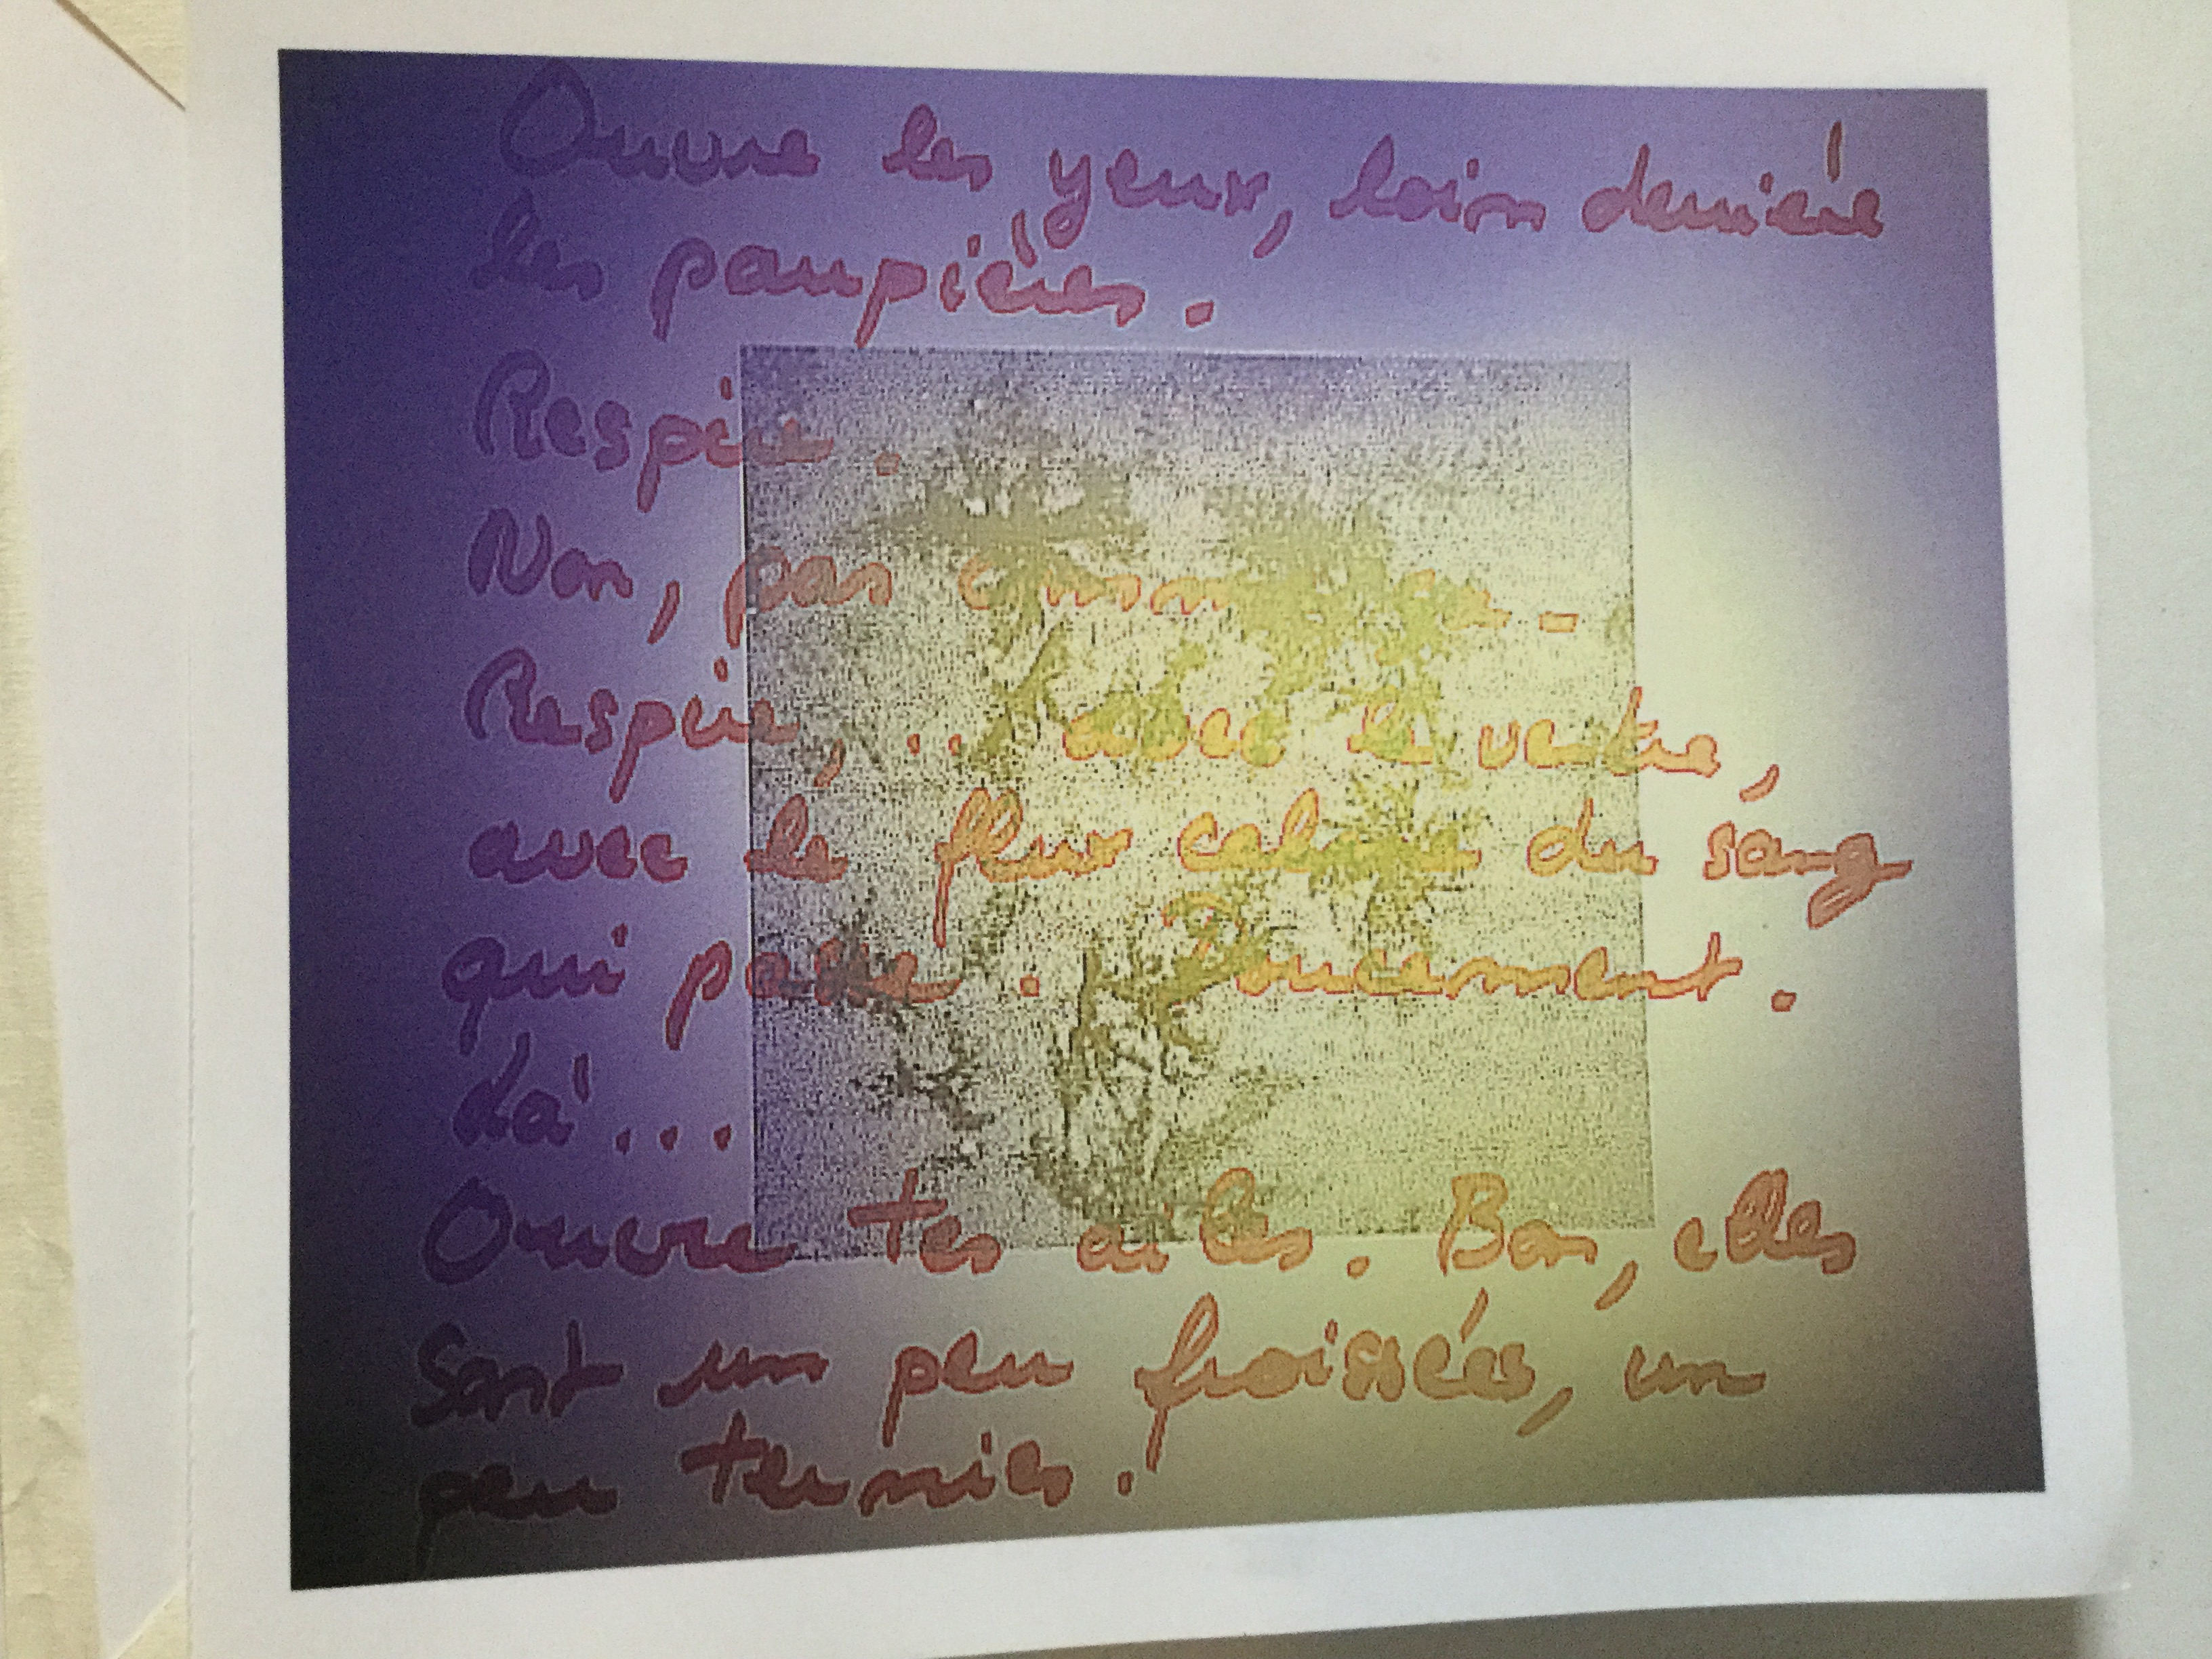 Ouvre les yeux, loin derrière
les paupières.
Respire.
Non, pas comme ça.
Respire, .. avec le ventre,
avec le flux calme du sang
qui passe. Doucement.
Là...
Ouvre tes ailes. Bon, elles
sont un peu froissées, un
peu ternies.